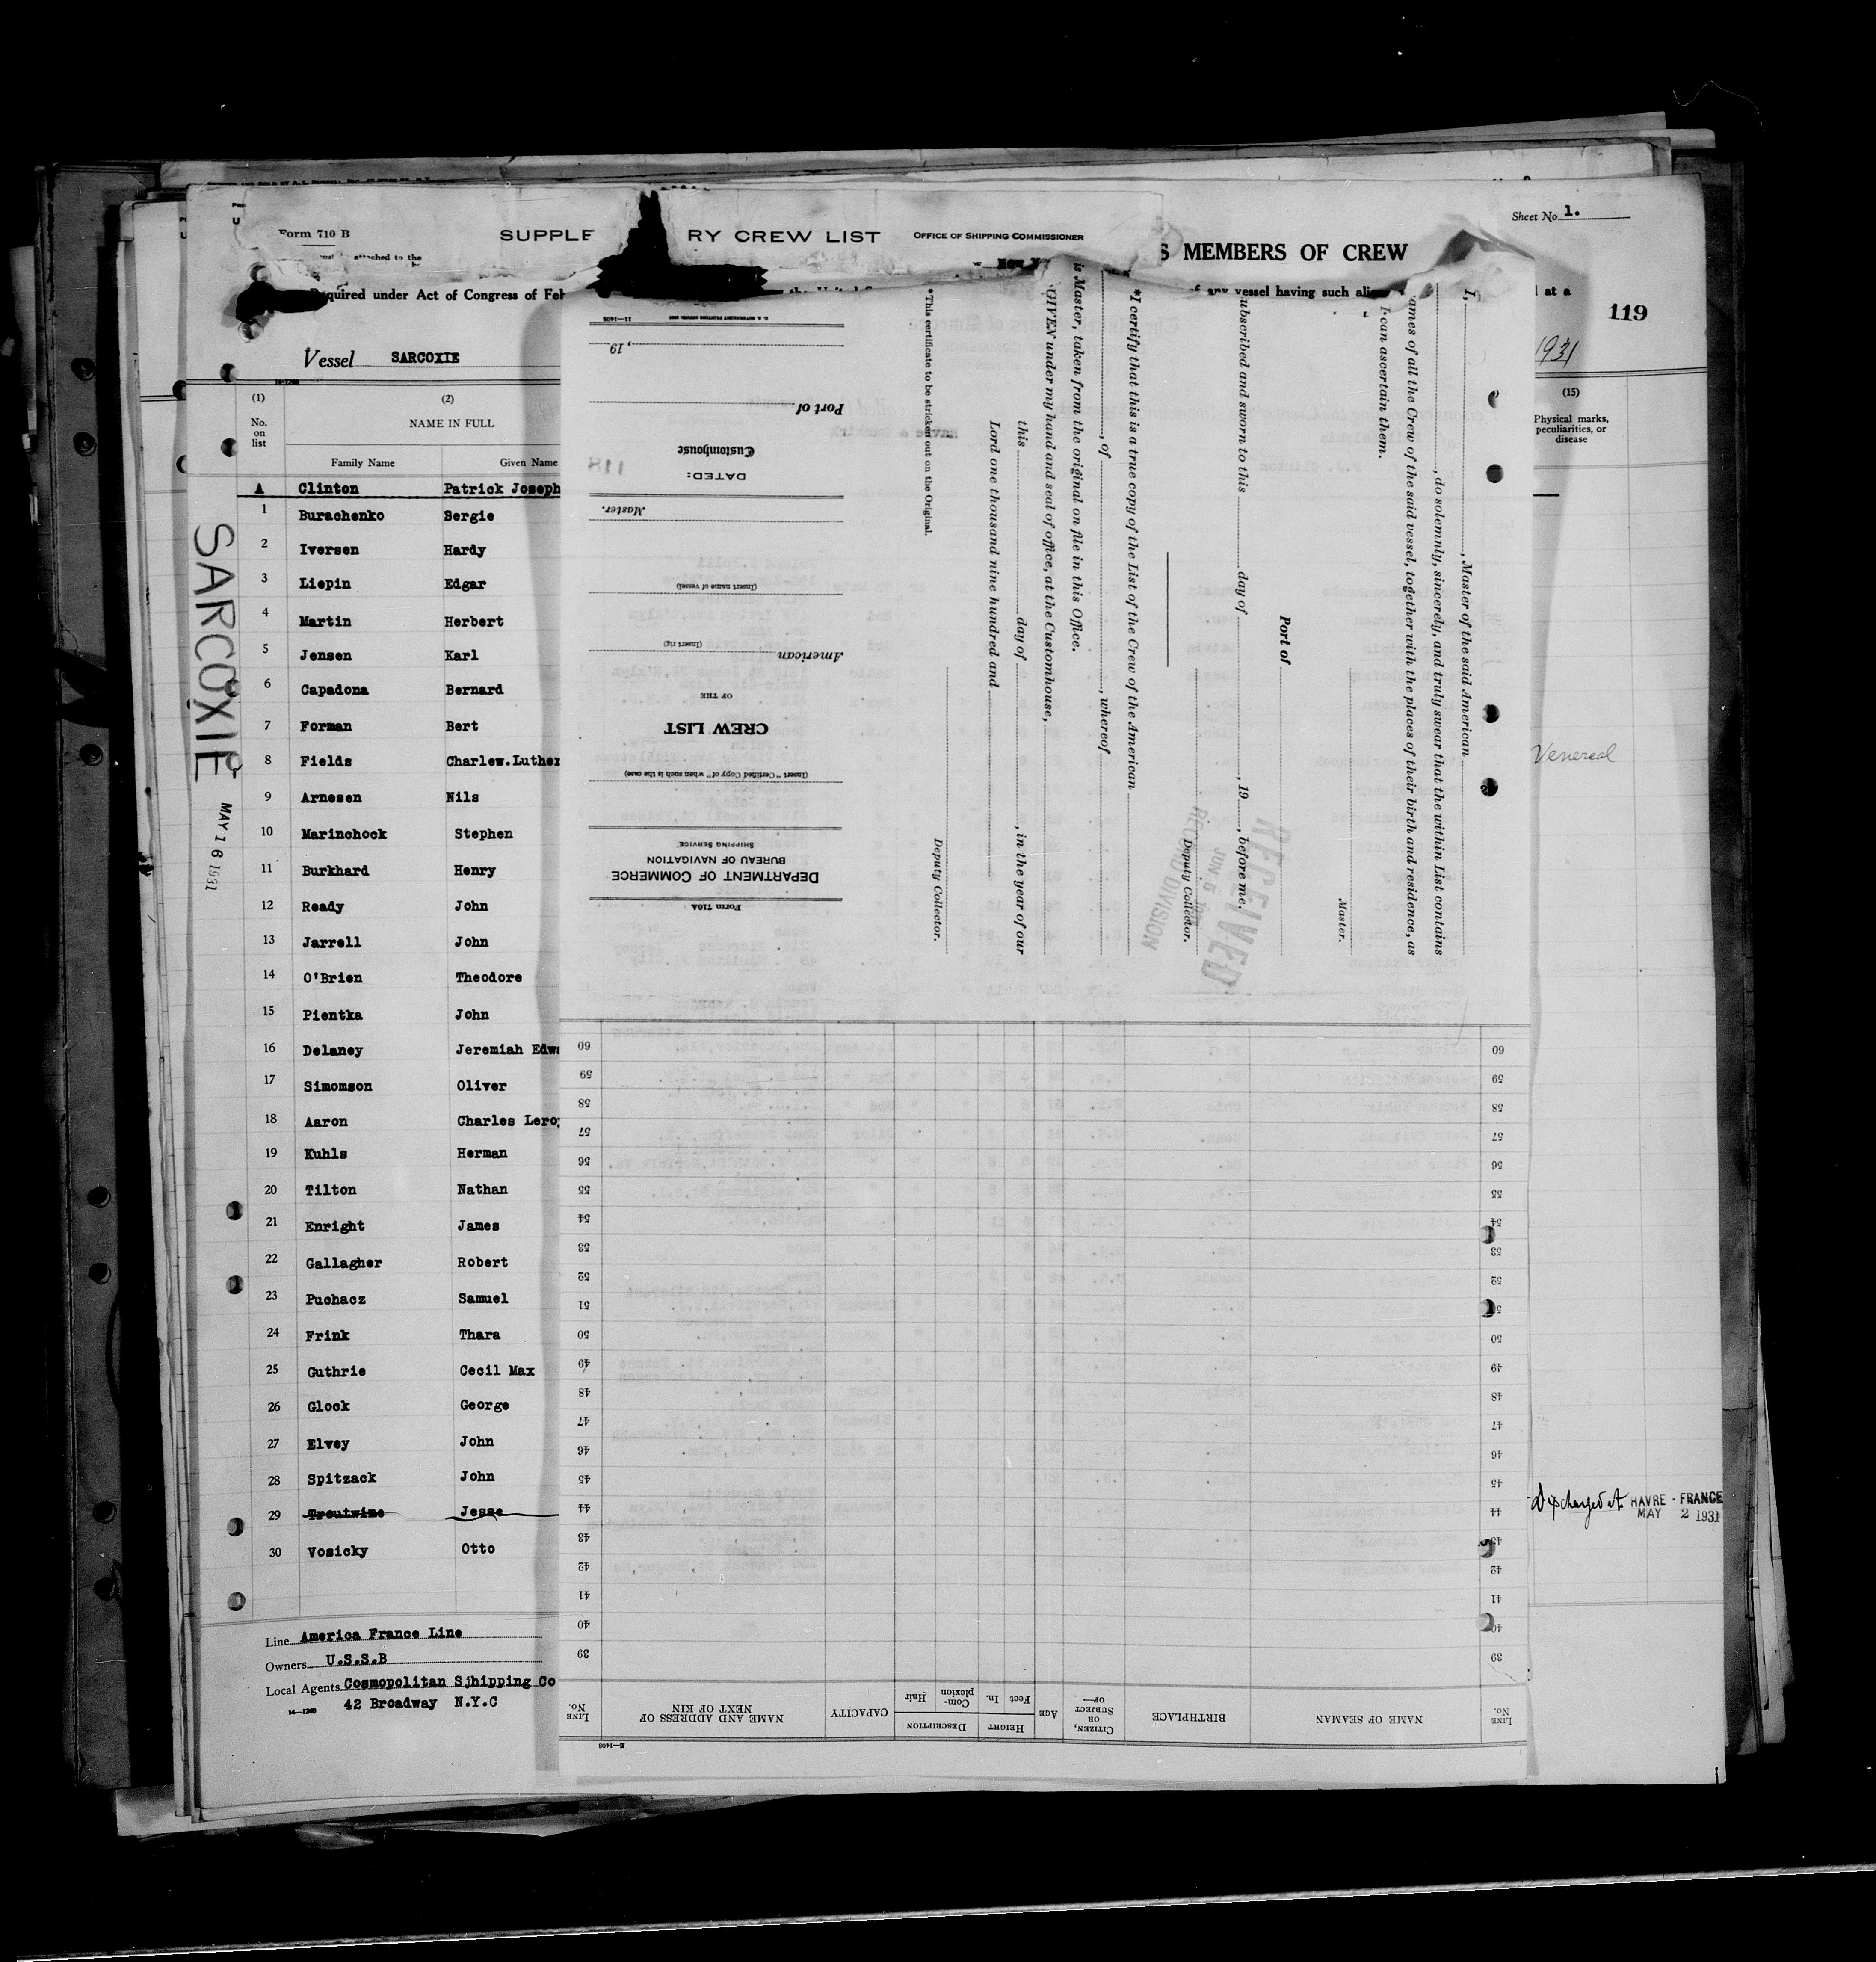 Sheet No. 1.
Form 710 B
SUPPLE RY CREW LIST
OFFICE OF SHIPPING COMMISSIONER
attached to the
S MEMBERS OF CREW
Required under Act of Congress of Feb
of any vessel having such alien
at a
119
1931
Vessel SARCOXIE
(1)
No. on list
(2)
NAME IN FULL
Family Name Given Name
(15)
Physical marks, peculiarities, or disease
A Clinton Patrick Joseph
1 Burachenko Sergie
2 Iversen Hardy
3 Liepin Edgar
4 Martin Herbert
5 Jensen Karl
6 Capadona Bernard
7 Forman Bert
8 Fields Charles.Luther
9 Arnesen Nils
10 Marinchock Stephen
11 Burkhard Henry
12 Ready John
13 Jarrell John
14 O'Brien Theodore
15 Pientka John
16 Delaney Jeremiah Edw
17 Simomson Oliver
18 Aaron Charles Leroy
19 Kuhls Herman
20 Tilton Nathan
21 Enright James
22 Gallagher Robert
23 Puchacz Samuel
24 Frink Thara
25 Guthrie Cecil Max
26 Glock George
27 Elvey John
28 Spitzack John
29 Troutwine Jesse
30 Vosicky Otto
Line America France Line
Owners U.S.S.B
Local Agents Cosmopolitan Sjhipping Co
42 Broadway N.Y.C
14-1240
SARCOXIE
MAY 16 1931
Venereal
Discharged at HAVRE - FRANCE
MAY 2 1931
I, , Master of the said American
, do solemnly, sincerely, and truly swear that the within List contains
ames of all the Crew of the said vessel, together with the places of their birth and residence, as
I can ascertain them.
Master.
Port of
ubscribed and sworn to this day of , 19 , before me.
Deputy Collector.
RECEIVED
JUN 5
RECORD DIVISION
*I certify that this is a true copy of the List of the Crew of the American
, of , whereof
is Master, taken from the original on file in this Office.
GIVEN under my hand and seal of office, at the Customhouse,
this day of , in the year of our
Lord one thousand nine hundred and
Deputy Collector.
*This certificate to be stricken out on the Original.
Form 710A
DEPARTMENT OF COMMERCE
BUREAU OF NAVIGATION
SHIPPING SERVICE
(Insert "Certified Copy of" when such is the case)
CREW LIST
OF THE
American
(Insert rig)
(Insert name of vessel)
Master.
DATED:
Customhouse
Port of
, 19
11-1408
118
LINE No.
NAME OF SEAMAN
BIRTHPLACE
CITIZEN, OR SUBJECT OF—
AGE
HEIGHT
Feet In.
DESCRIPTION
Complexion Hair
CAPACITY
NAME AND ADDRESS OF NEXT OF KIN
LINE No.
39 39
40 40
41 41
42 42
43 43
44 44
45 45
46 46
47 47
48 48
49 49
50 50
51 51
52 52
53 53
54 54
55 55
56 56
57 57
58 58
59 59
60 60